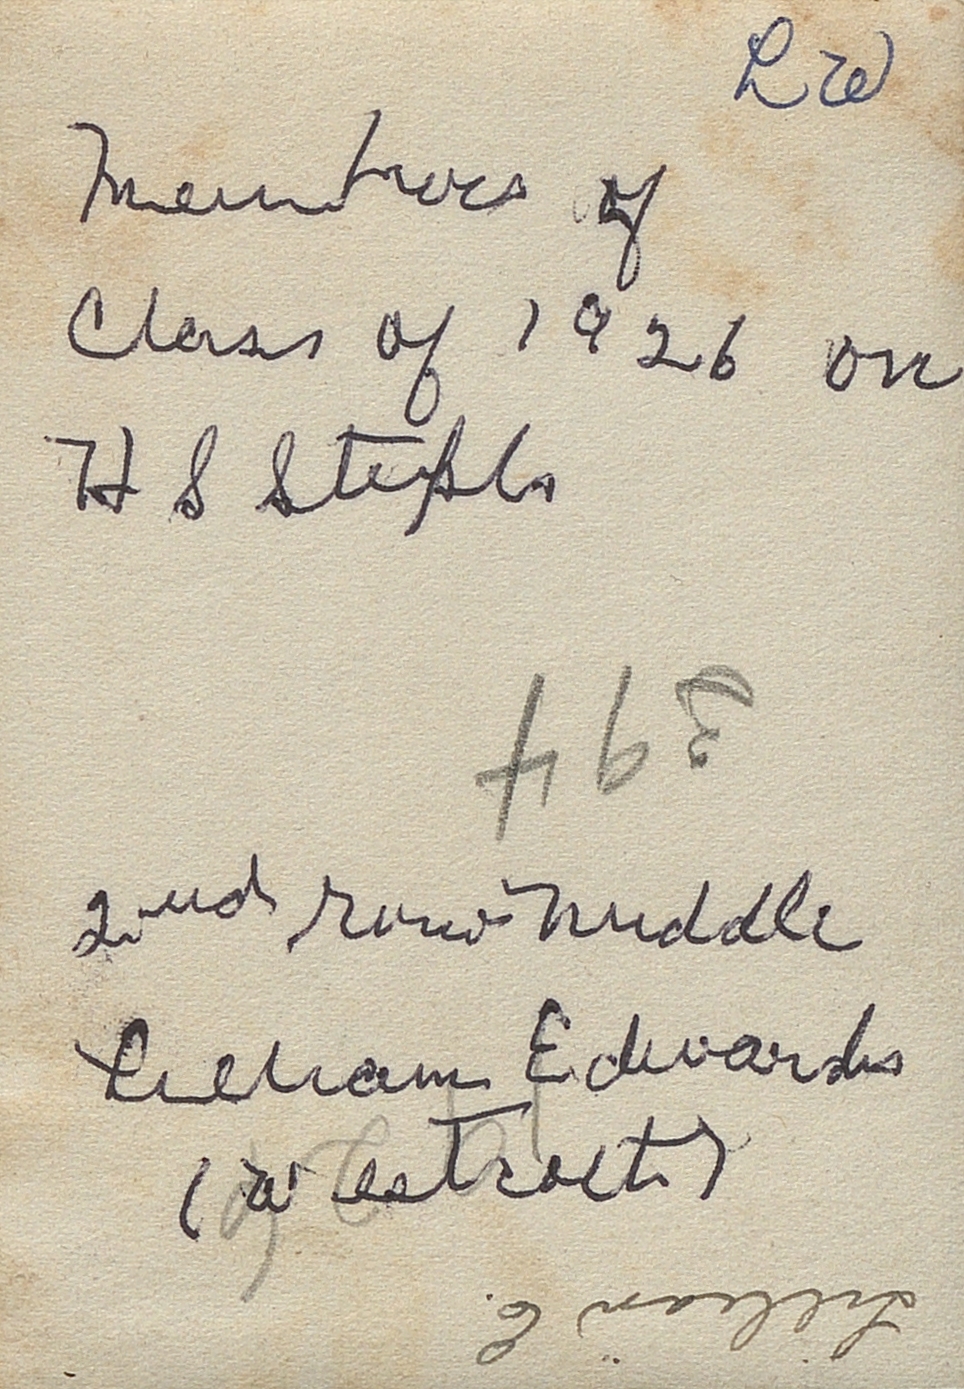 LW
Members of
Class of 1926 on
H S Steps
394
2nd row middle
Lillian Edwards
(Westcott)
Lillian E.